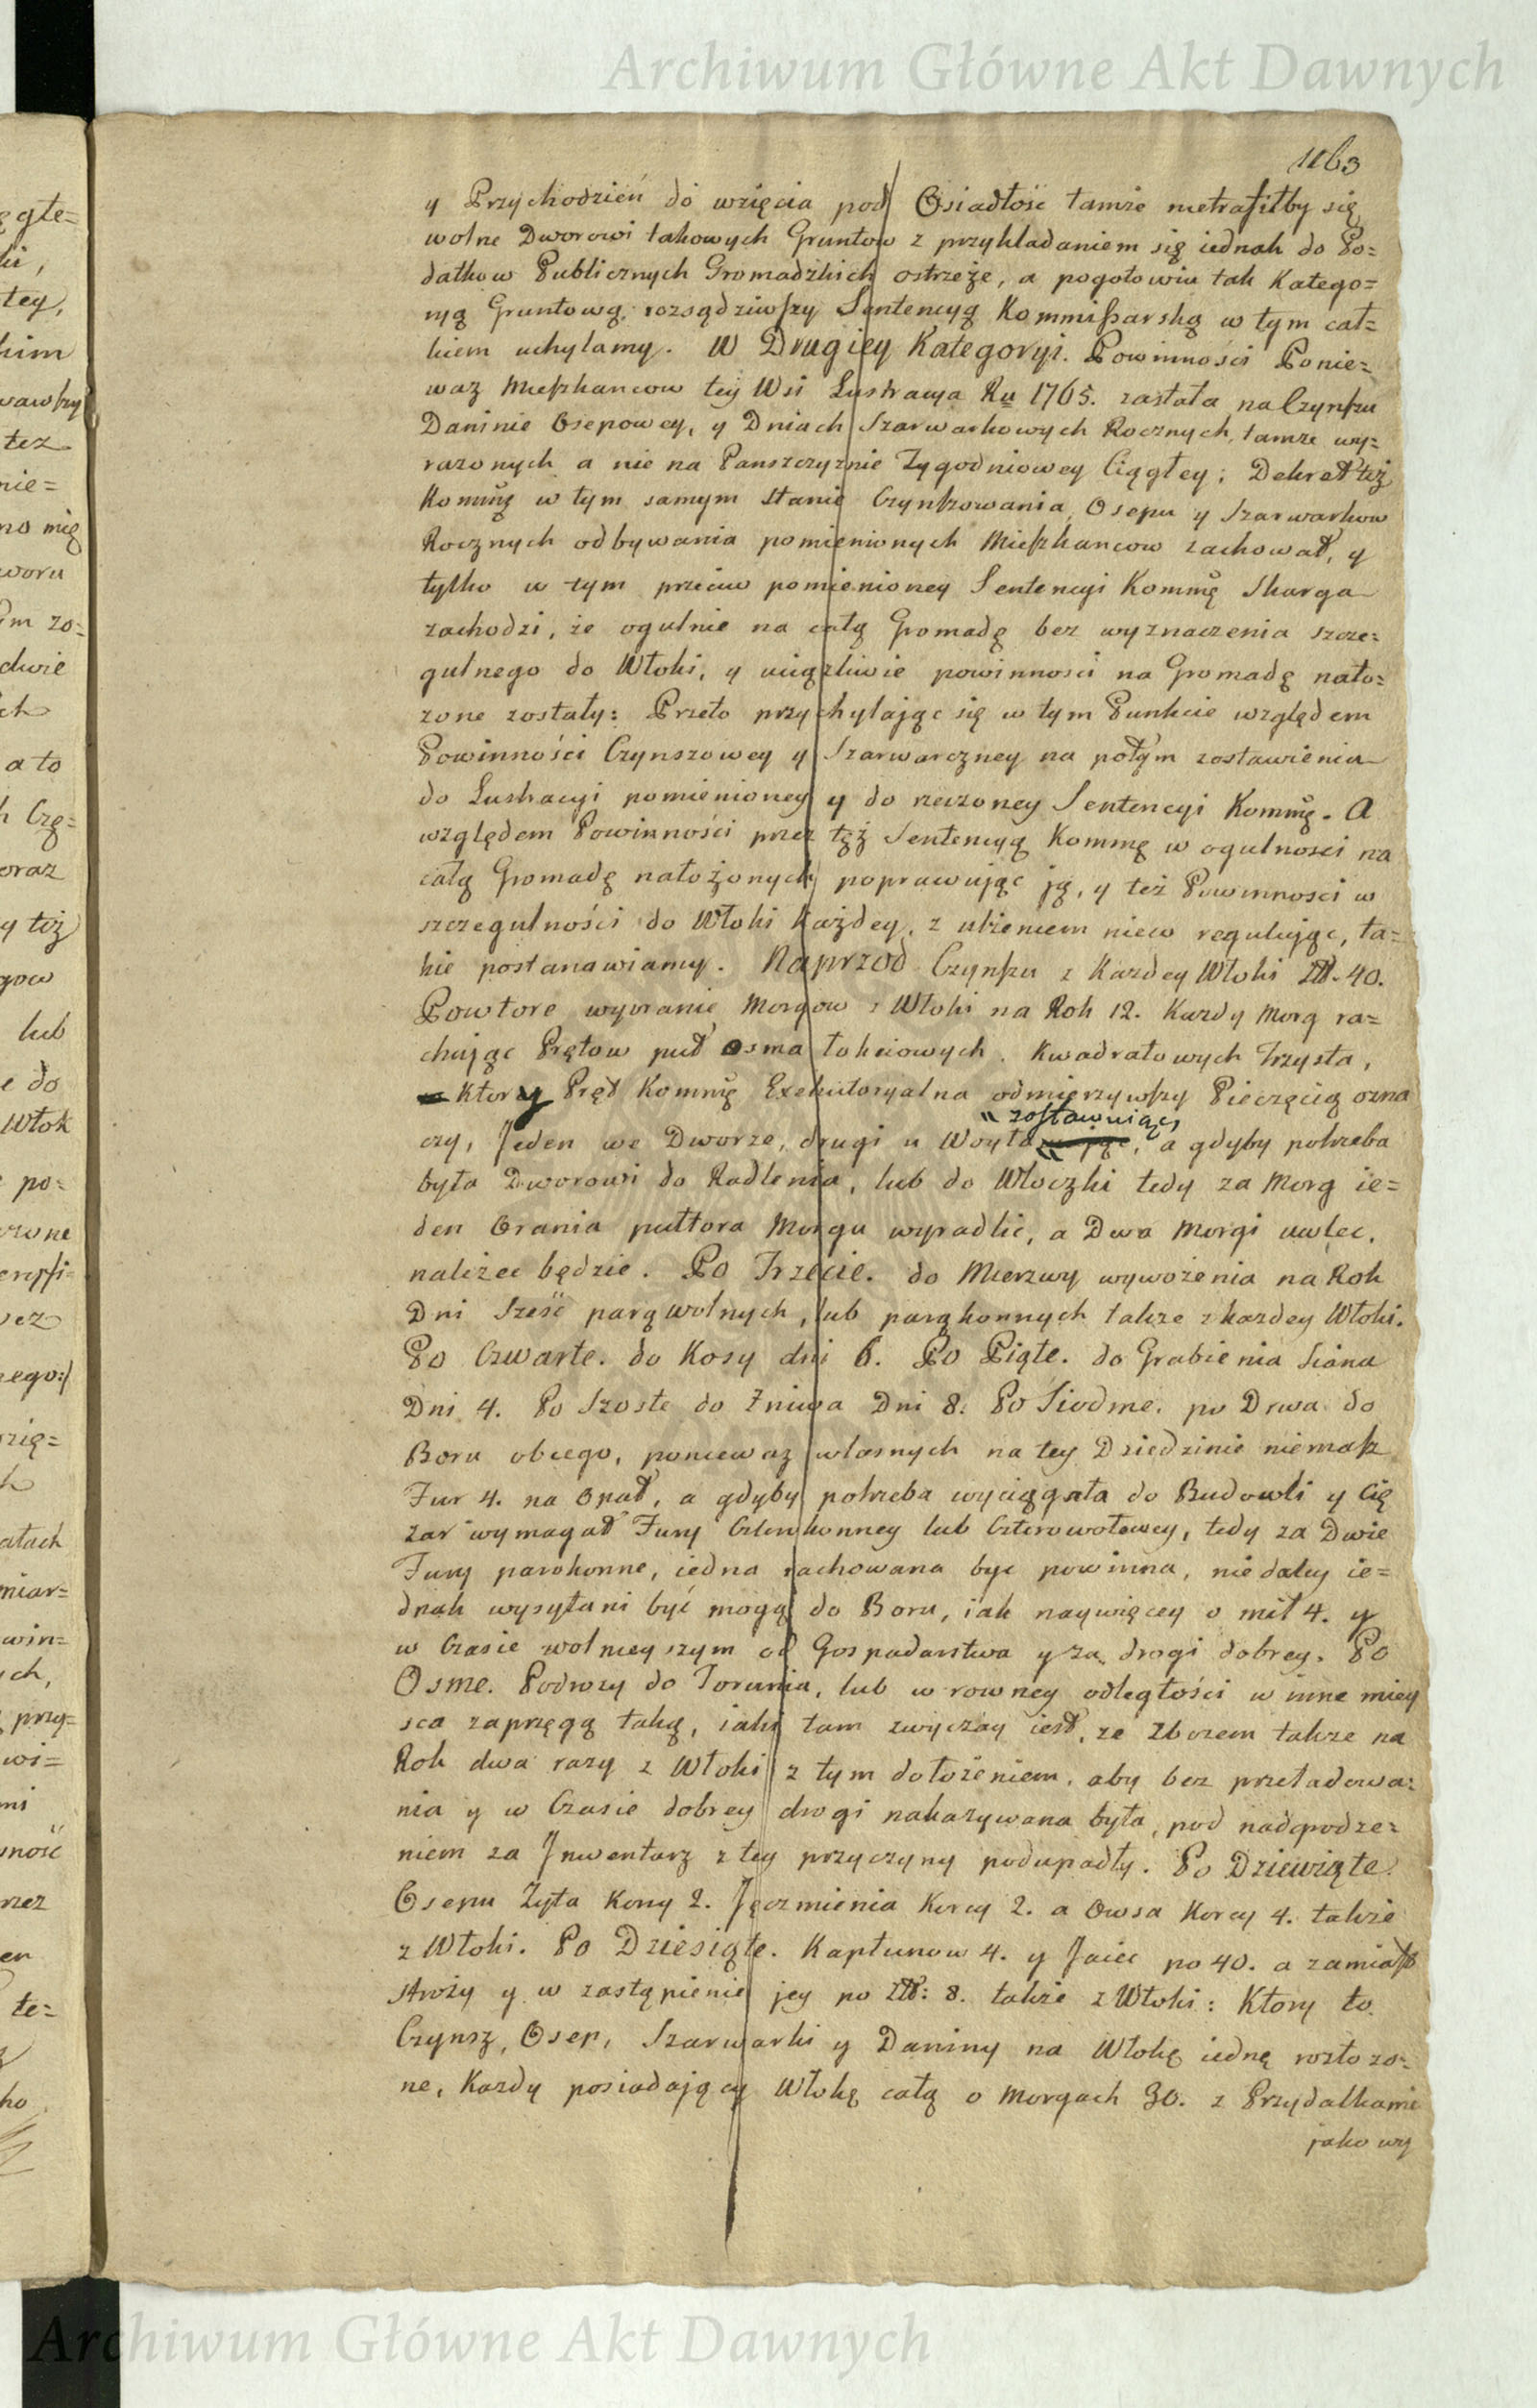 Archiwum Główne Akt Dawnych
1163
y Przychodzień do wzięcia pod Osiadłość tamże nietrafiłby się
wolne Dworowi takowych Gruntow z przykładaniem się iednak do Po=
datkow Publicznych Gromadzkich ostrzeże, a pogotowiu tak Katego=
ryą Gruntową, rozsądziwszy Sentencyą Kommissarską w tym cał=
kiem uchylamy. W Drugiey Kategoryi. Powinności Ponie=
waz Mieszkancow tey Wsi Lustracya Ru 1765. zastała na Czynszu
Daninie Osepowey, y Dniach Szarwarkowych Rocznych, tamże wy=
razonych a nie na Panszczyznie Tygodniowey Ciągłey; Dekret też
Kommę w tym samym stanie Czynszowania, Osepu y Szarwarkow
Rocznych odbywania pomienionych Mieszkancow zachował, y
tylko w tym przeciw pomienioney Sentencyi Kommę Skarga
zachodzi, że ogulnie na całą Gromadę bez wyznaczenia szcze=
gulnego do Włoki, y uciążliwie powinności na Gromadę nało=
zone zostały: Przeto przychylając się w tym Punkcie względem
Powinności Czynszowey y Szarwarczney na połym zostawienia
do Lustracyi pomienioney y do rzeczoney Sentencyi Kommę. A
względem Powinności przez tęż Sentencyą Kommę w ogulnosci na
całą Gromadę nałożonych poprawując ją, y też Powinnosci w
szczegulności do Włoki każdey, z ulżeniem niew regulując, ta=
kie postanawiamy. Naprzod Czynszu z Każdey Włoki Zł. 40.
Powtore wyoranie Morgow z Włoki na Rok 12. Kazdy Morg ra=
chując Prętow puł osma łokciowych. Kwadratowych Trzysta,
Ktory Pręt Kommę Exekutoryalna odmierzywszy Pieczęcią ozna
czy, Jeden we Dworze, drugi u Woyta zostawuiąc, a gdyby potrzeba
była Dworowi do Radlenia, lub do Włoczki tedy za Morg ie=
den Orania pułtora Morgu wyradlic, a Dwa Morgi uwlec,
należec będzie. Po Trzecie. do Mierzwy wywożenia na Rok
Dni Sześć parą wolnych, lub parą konnych takze z kazdey Włoki.
Po Czwarte. do Kosy dni 6. Po Piąte. do Grabienia Siana
Dni 4. Po Szoste do Żniwa Dni 8. Po Siodme. po Drwa do
Boru obcego, poniewaz własnych na tey Dziedzinie niemasz
Fur 4. na Opał, a gdyby potrzeba wyciągała do Budowli y Cię
zar wymagał Fury Czterokonney lub Czterowołowey, tedy za Dwie
Fury parokonne, iedna rachowana byc powinna, nie daley ie=
dnak wysyłani być mogą do Boru, iak naywięcey o mil 4. y
w Czasie wolnieyszym od Gospodarstwa y za drogi dobrey. Po
Osme. Podrozy do Torunia, lub w rowney odległości w inne miey
sca zaprzęgą taką, iaki tam zwyczay iest, ze Zbozem takze na
Rok dwa razy z Włoki z tym dołożeniem, aby bez przeładowa=
nia y w Czasie dobrey drogi nakazywana była, pod nadgrodze=
niem za Jnwentarz z tey przyczyny podupadły. Po Dziewiąte.
Osepu Żyta Korcy 2. Jęczmienia Korcy 2. a Owsa Korcy 4. takze
z Włoki. Po Dziesiąte. Kapłunow 4. y Jaiec po 40. a zamiast
stroży y w zastąpienie jey po Zł: 8. także z Włoki: Ktory to
Czynsz, Osep, Szarwarki y Daniny na Włokę iednę rozłozo=
ne, Kazdy posiadający Włokę całą o Morgach 30. z Przydatkami
jako wy
Archiwum Główne Akt Dawnych